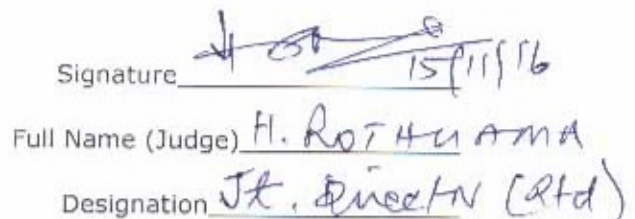 Signature 15/11/16
Full Name (Judge) H. ROTHUAMA
Designation Jt. Director (Rtd)